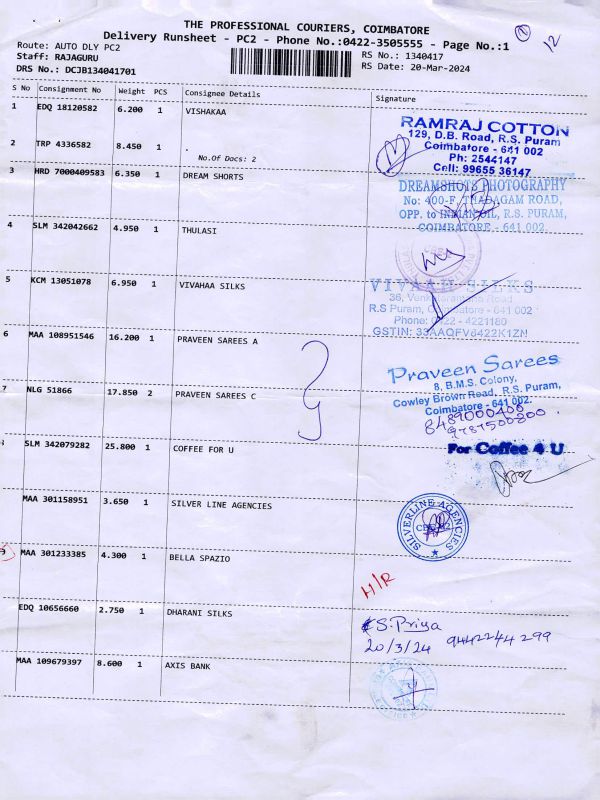 THE PROFESSIONAL COURIERS, COIMBATORE
Delivery Runsheet - PC2 - Phone No.:0422-3505555 - Page No.:1
12
Route: AUTO DLY PC2
Staff: RAJAGURU
DRS No.: DCJB134041701
RS No.: 1340417
RS Date: 20-Mar-2024
S No Consignment No Weight PCS Consignee Details Signature
1 EDQ 18120582 6.200 1 VISHAKAA
RAMRAJ COTTON
129, D.B. Road, R.S. Puram
Coimbatore - 641 002
Ph: 2544147
Cell: 99655 36147
2 TRP 4336582 8.450 1 .
No.Of Docs: 2
3 HRD 7000409583 6.350 1 DREAM SHORTS
DREAMSHOTS PHOTOGRAPHY
No: 400-F, THADAGAM ROAD,
OPP. to INDIAN OIL, R.S. PURAM,
COIMBATORE - 641 002.
4 SLM 342042662 4.950 1 THULASI
5 KCM 13051078 6.950 1 VIVAHAA SILKS
VIVAAH SILKS
36, Venkataramana Road
R.S Puram, Coimbatore - 641 002
Phone: 0422 - 4221180
GSTIN: 33AAQFV8422K1ZN
6 MAA 108951546 16.200 1 PRAVEEN SAREES A
Praveen Sarees
8, B.M.S. Colony,
Cowley Brown Road, R.S. Puram,
Coimbatore - 641 002.
8489000400
9787500200
7 NLG 51866 17.850 2 PRAVEEN SAREES C
SLM 342079282 25.800 1 COFFEE FOR U
For Coffee 4 U
MAA 301158951 3.650 1 SILVER LINE AGENCIES
SILVERLINE AGENCIES
MAA 301233385 4.300 1 BELLA SPAZIO
H/R
EDQ 10656660 2.750 1 DHARANI SILKS
S. Priya
20/3/24 9442244 299
MAA 109679397 8.600 1 AXIS BANK